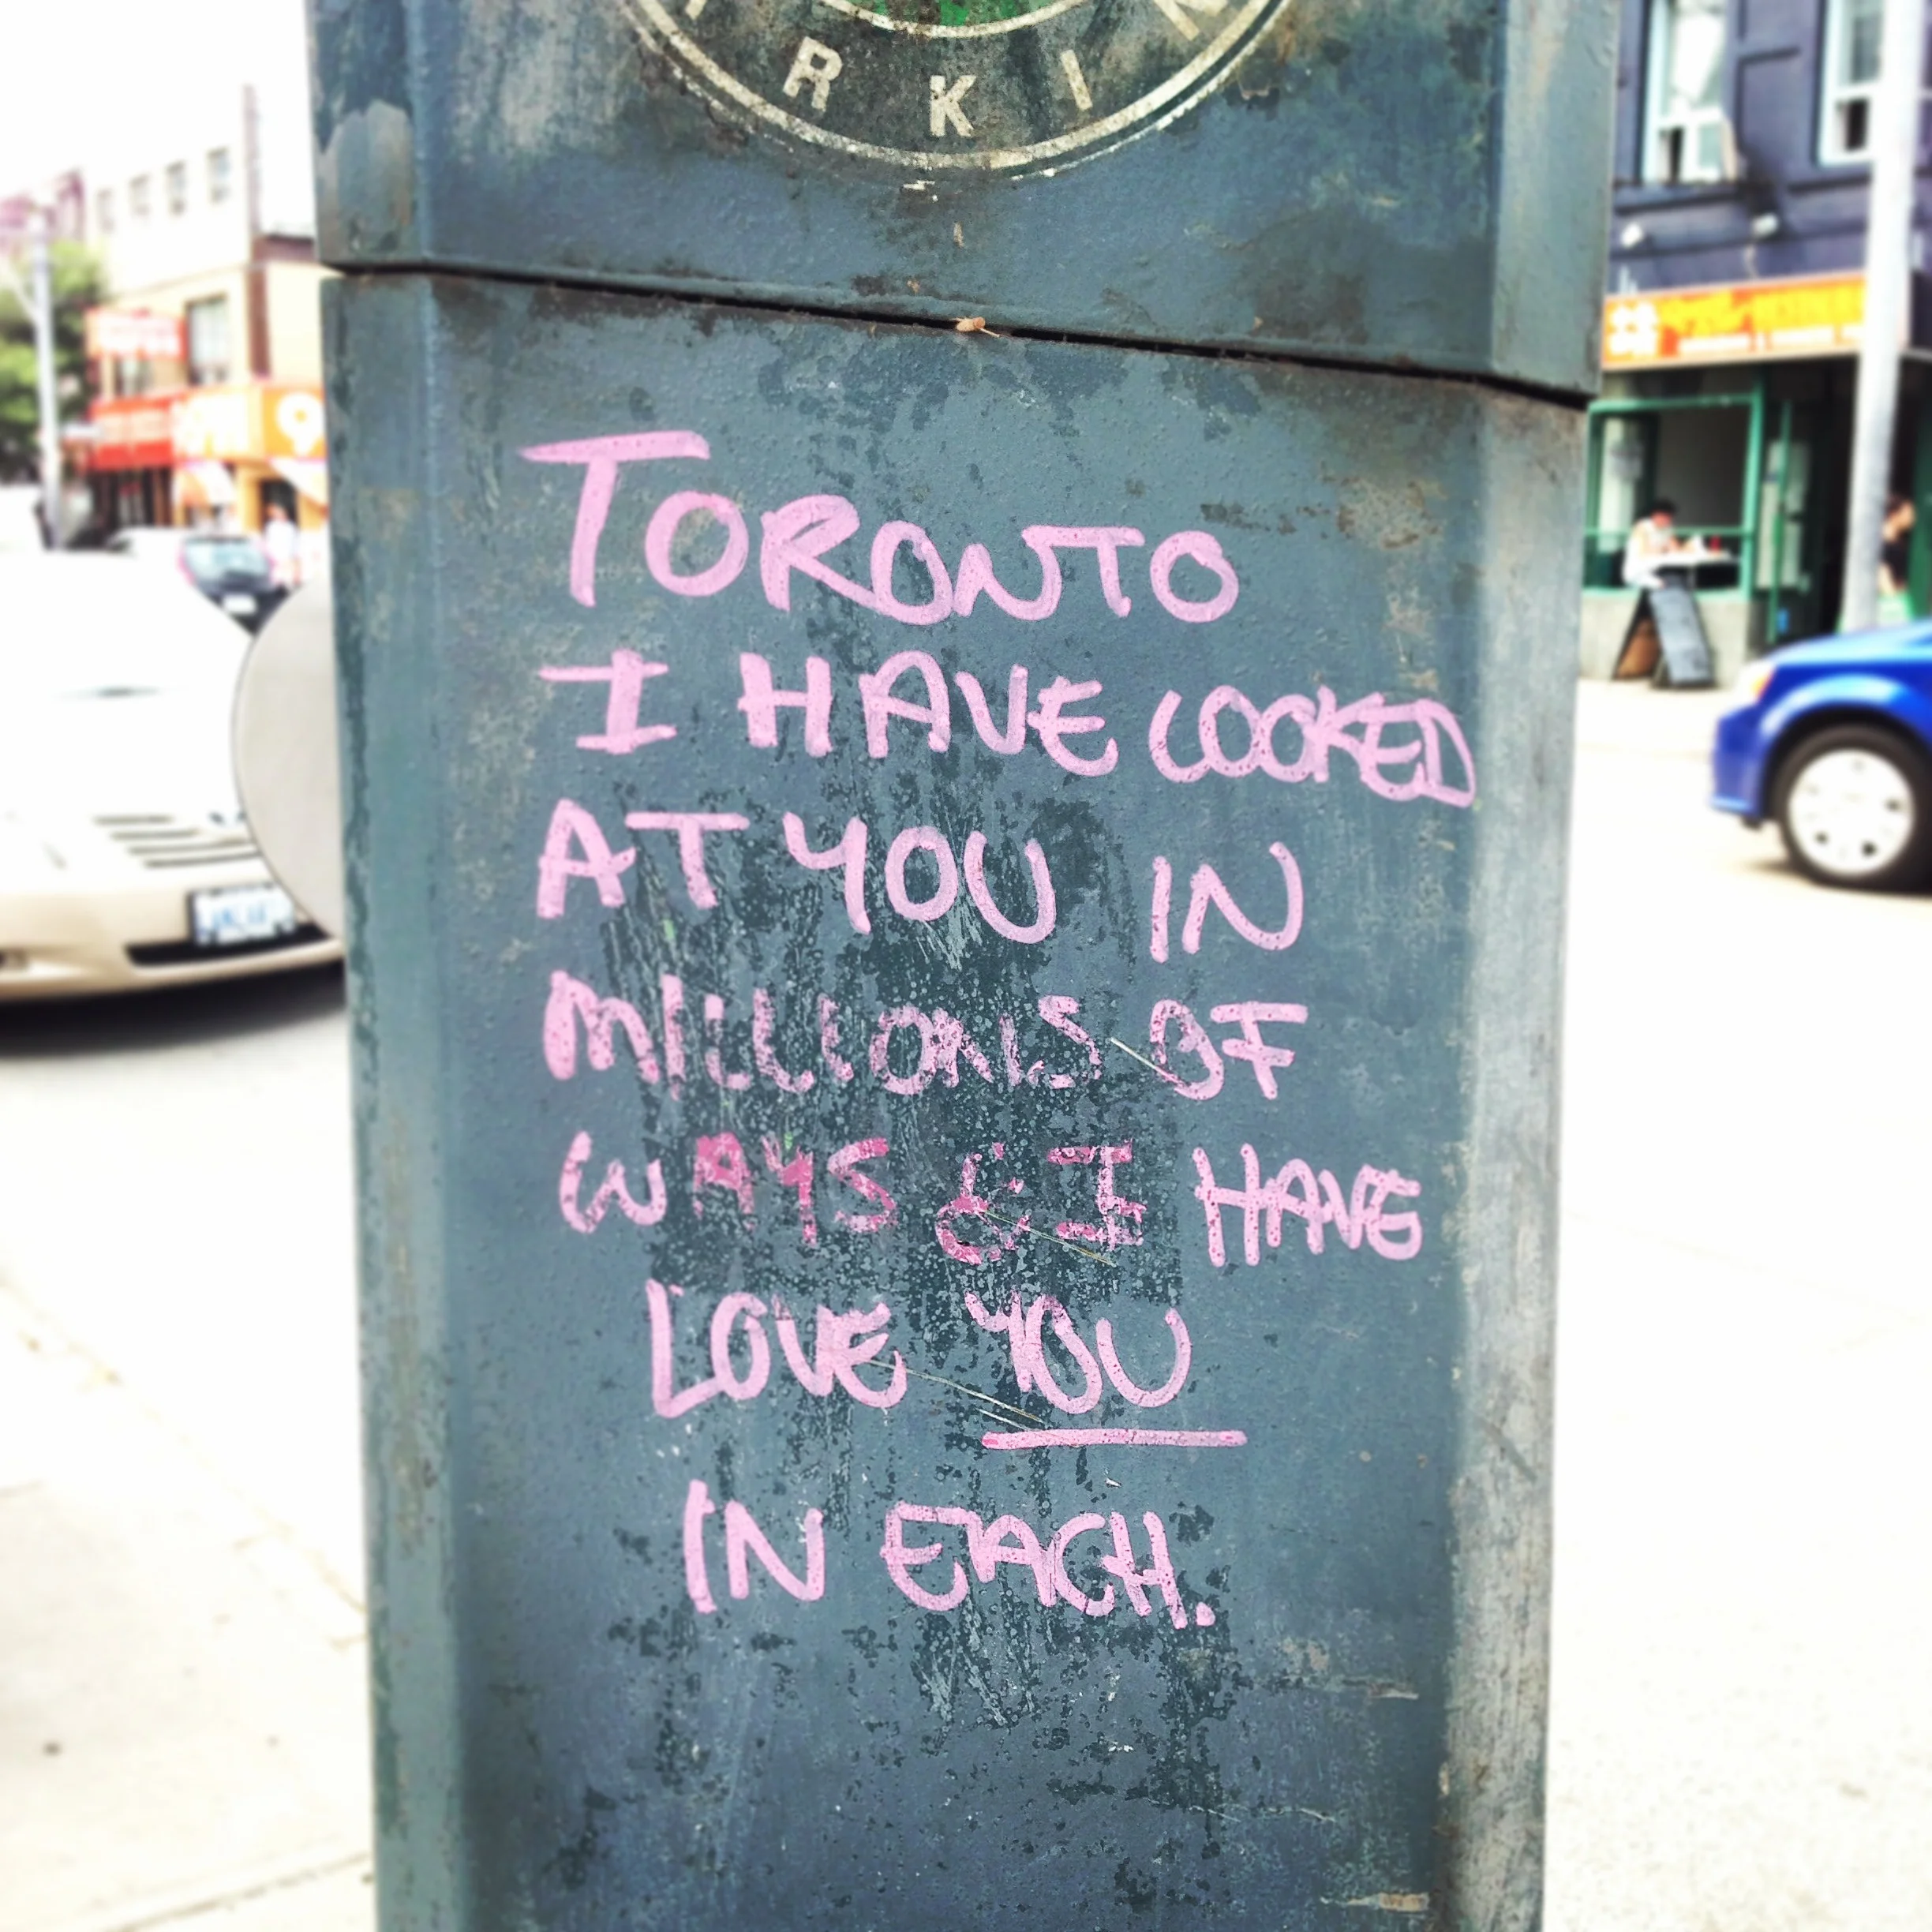 RKIN
TORONTO
I HAVE LOOKED
AT YOU IN
MILLIONS OF
WAYS & I HAVE
LOVE YOU
IN EACH.